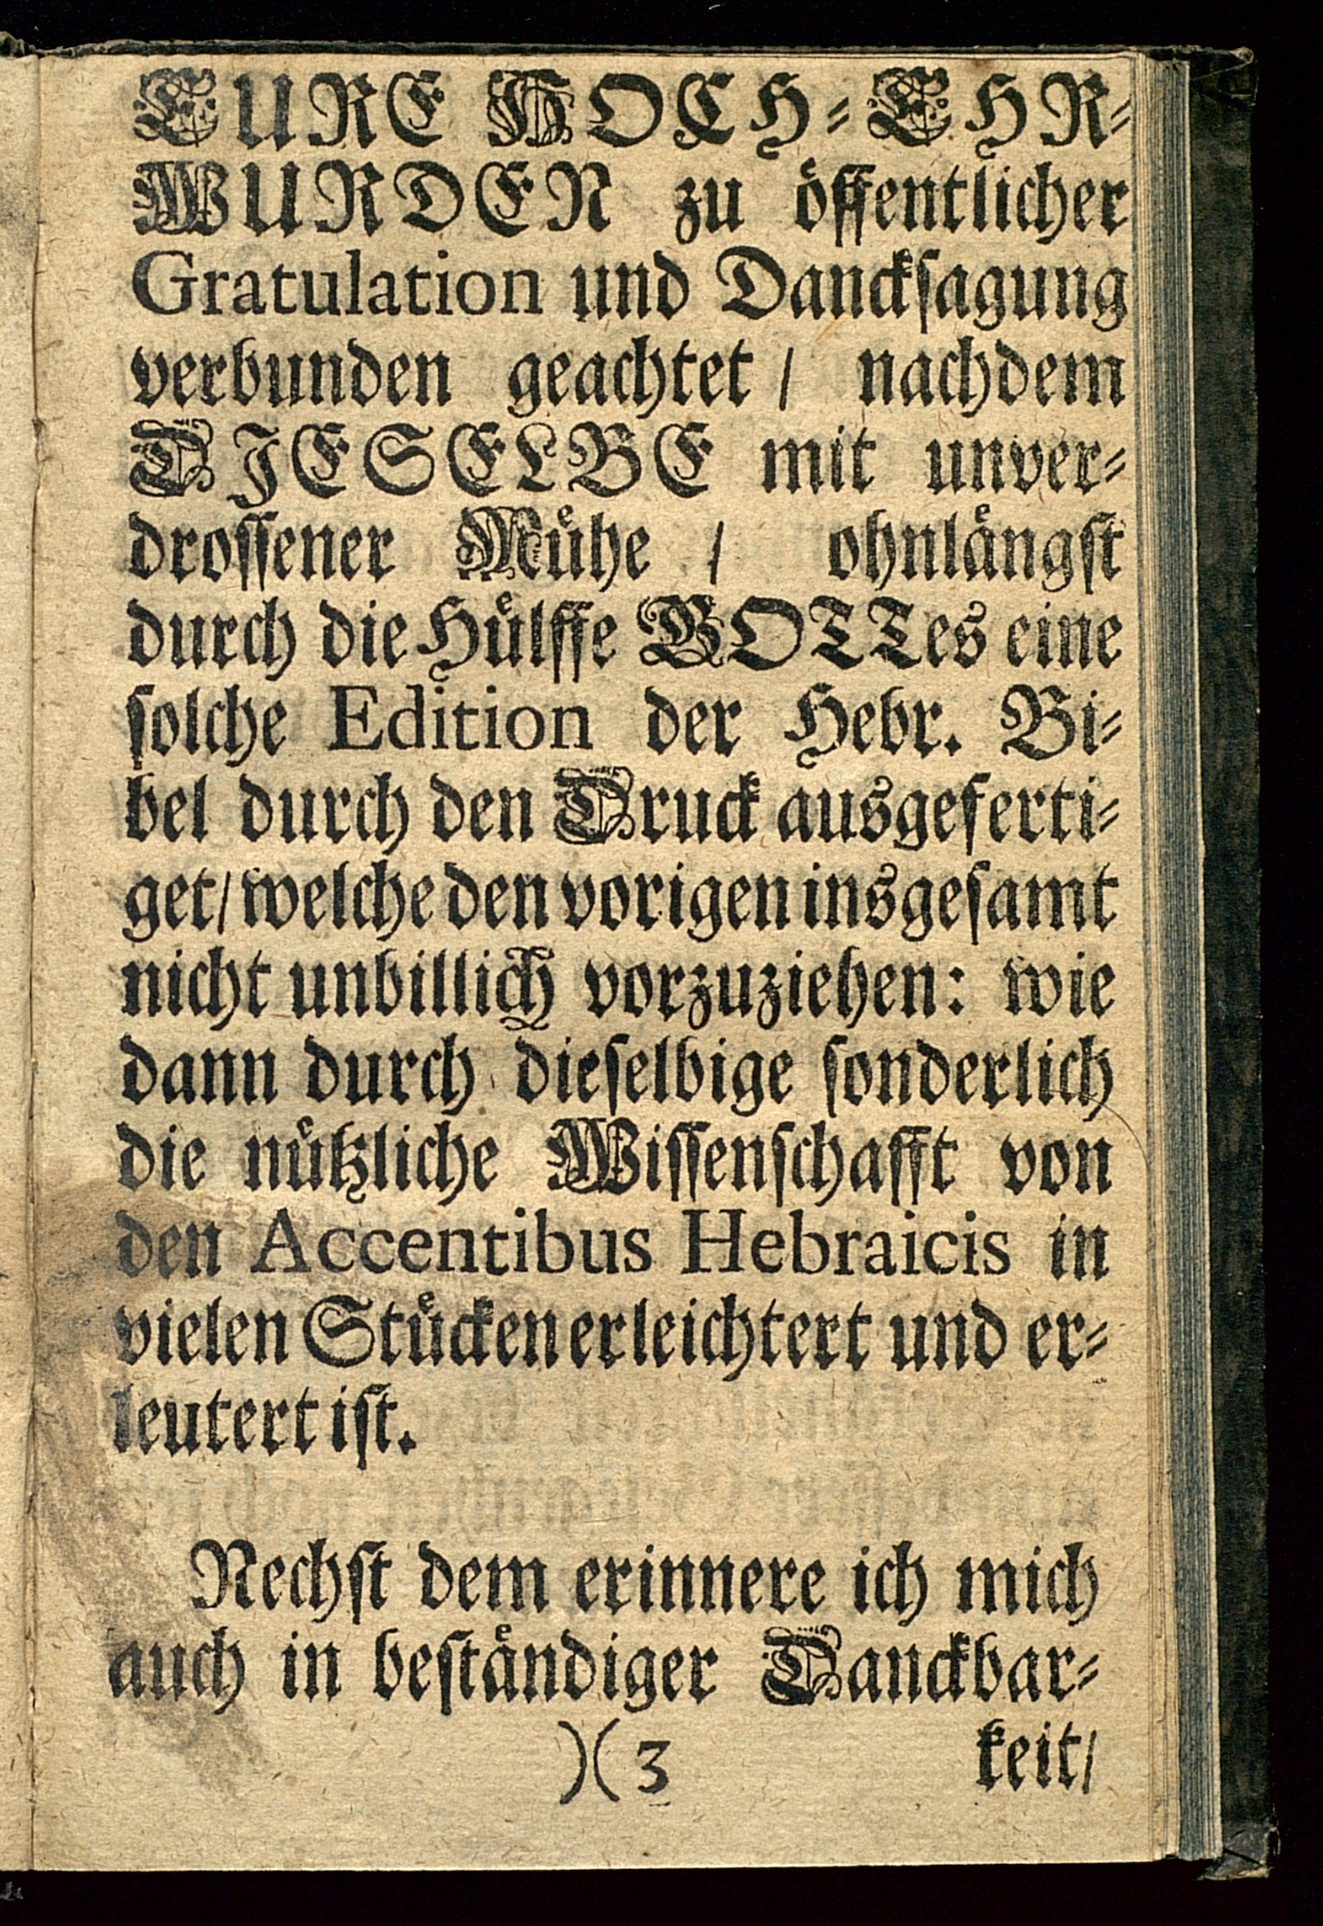 EURE HOCH-EHR-
WURDEN zu öffentlicher
Gratulation und Danckſagung
verbunden geachtet / nachdem
DIESELBE mit unver-
droſſener Muͤhe / ohnlaͤngſt
durch die Huͤlffe GOTTes eine
ſolche Edition der Hebr. Bi-
bel durch den Druck ausgeferti-
get/ welche den vorigen insgeſamt
nicht unbillich vorzuziehen: wie
dann durch dieſelbige ſonderlich
die nuͤtzliche Wiſſenſchafft von
den Accentibus Hebraicis in
vielen Stuͤcken erleichtert und er-
leutert iſt.
Nechſt dem erinnere ich mich
auch in beſtaͤndiger Danckbar-
)(3 keit/